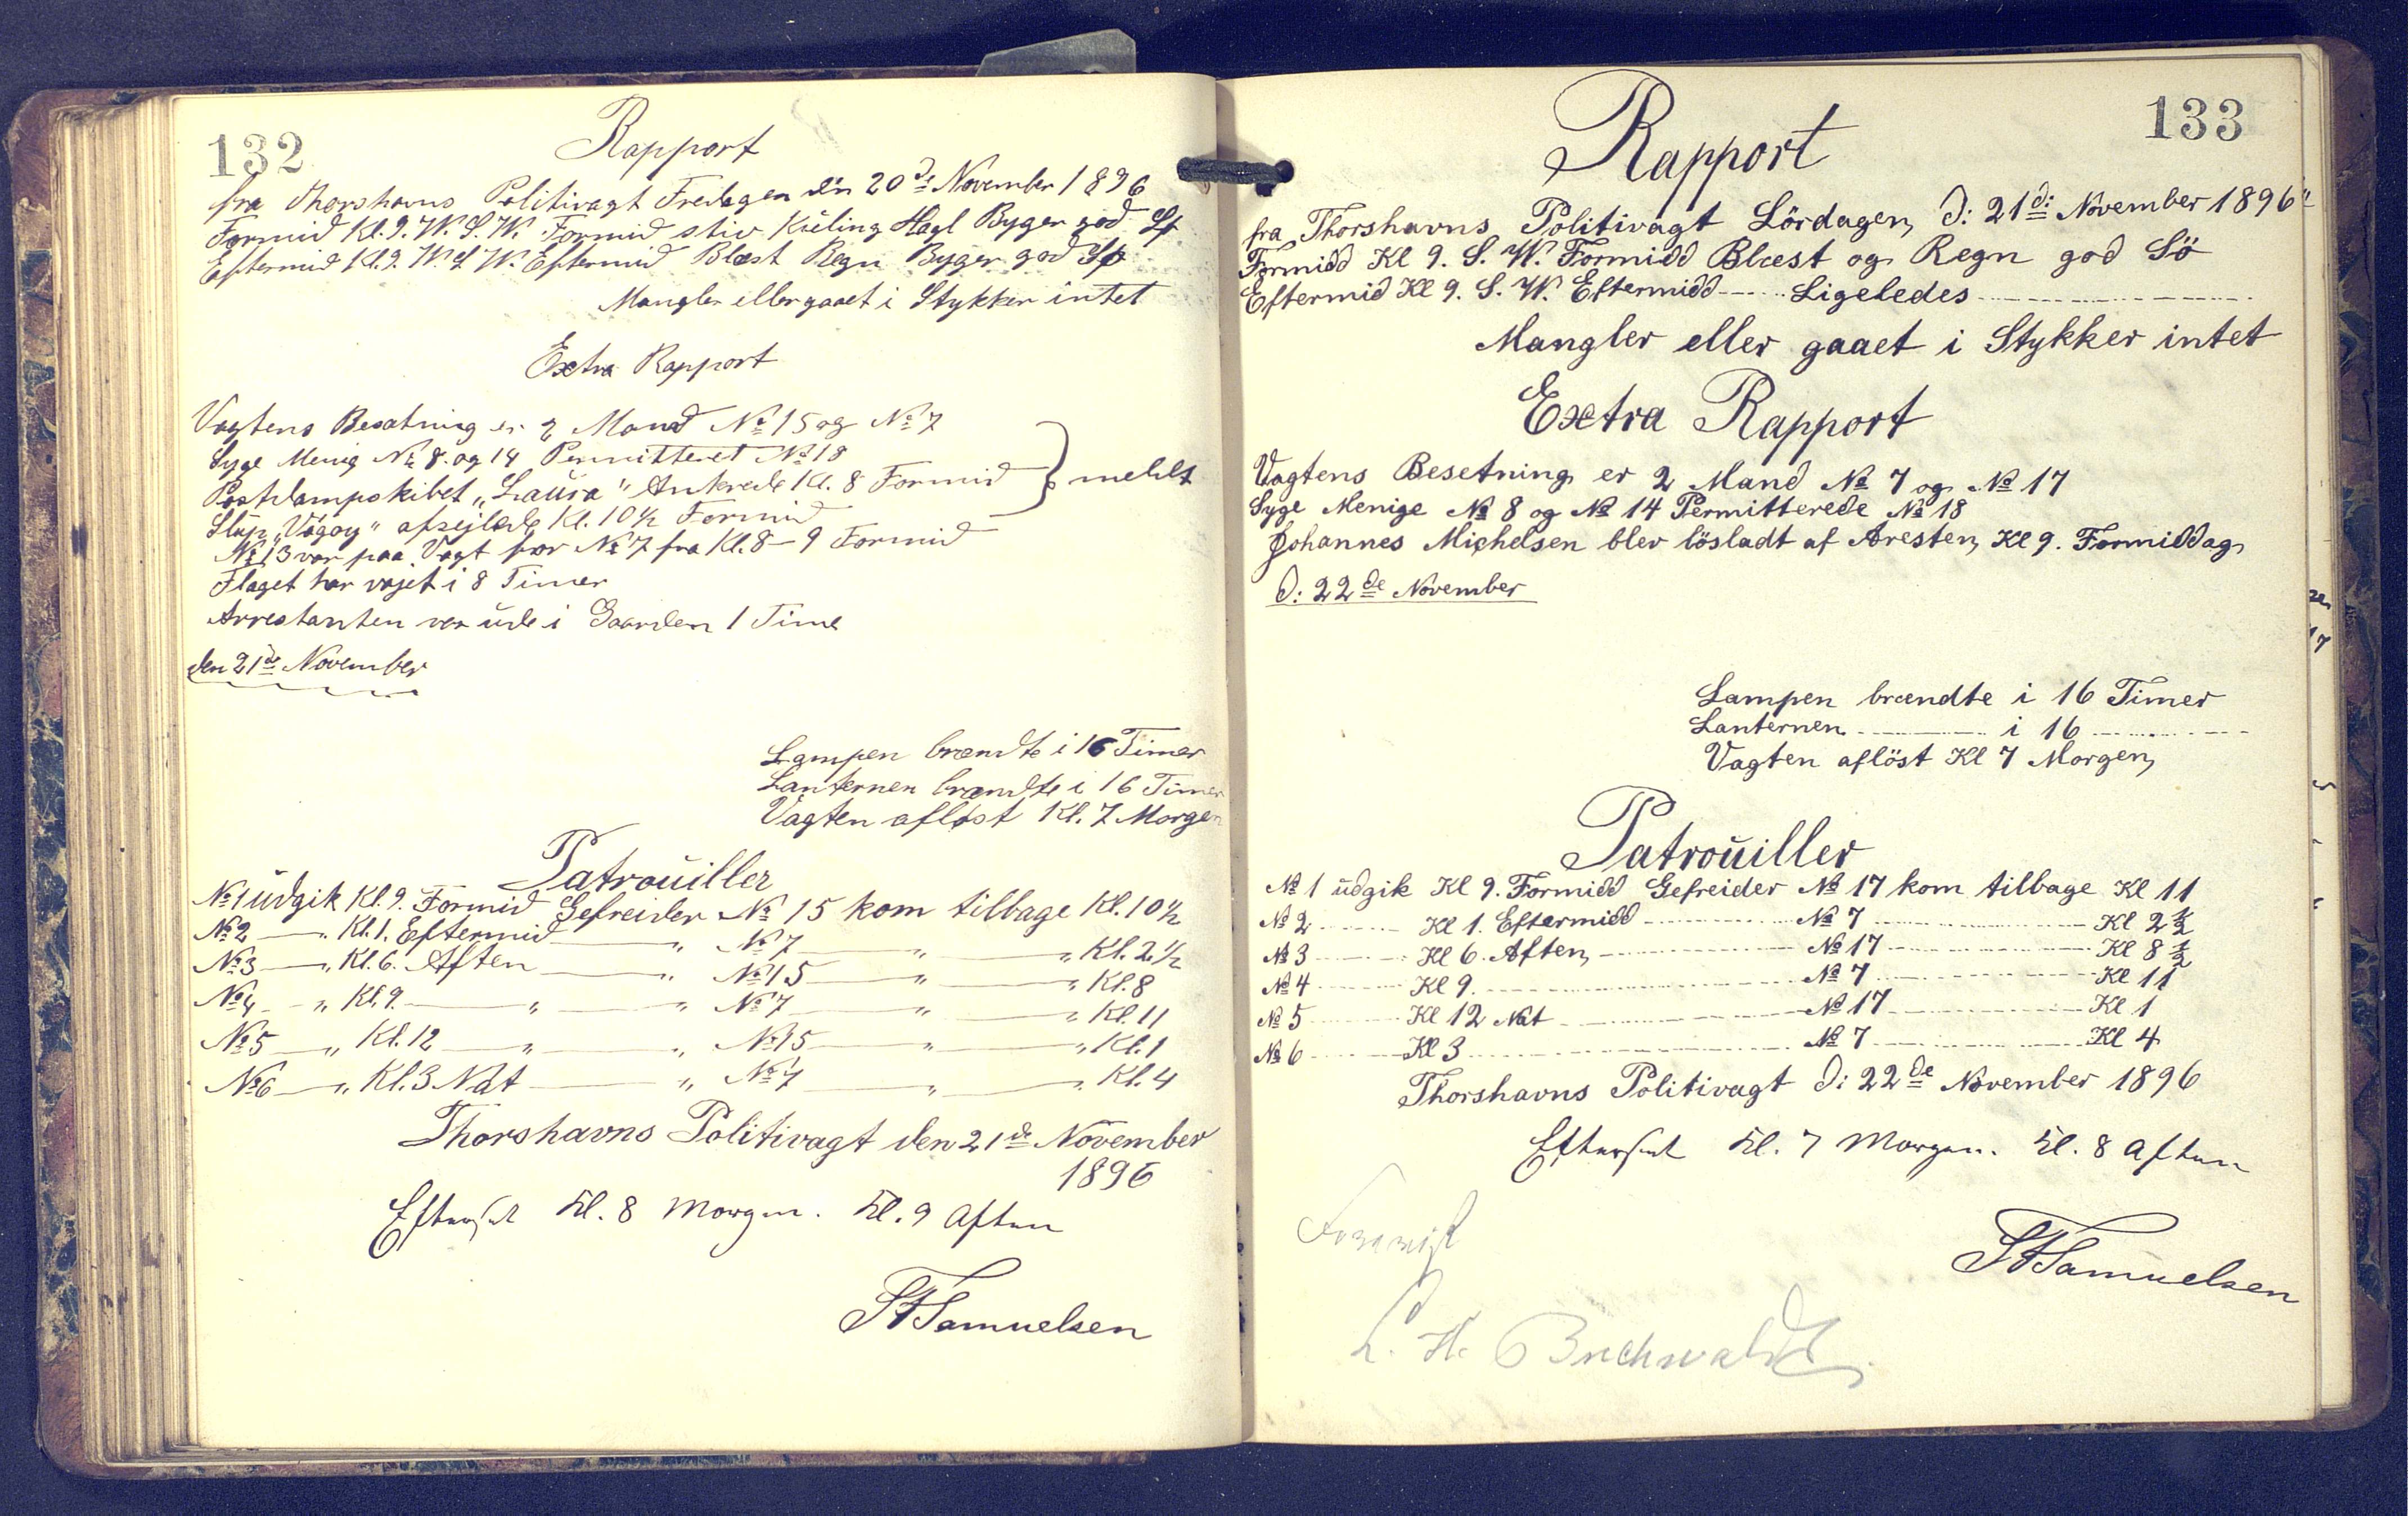 132
Rapport
fra Thorshavns Politivagt Fredagen den 20de November 1896
Formid Kl. 9. W. S. W. Formid stiv Kuling Hagl Byger god Sø
Eftermid Kl. 9. W. S W. Eftermid Blæst Regn Byger god Sø
Mangler eller gaaet i Stykker intet
Extra Rapport
Vagtens Besætning er 2 Mand № 15 og № 7
Syge Menig № 8. og 14 Permitteret № 18
Postdampskibet „Laura" Ankrede Kl. 8 Formid } meldt
Slup „Vågoy" afsejlede Kl. 10½ Formid
№ 13 var paa Vagt for № 7 fra Kl. 8 – 9 Formid
Flaget har vajet i 8 Timer
Arrestanten var ude i Gaarden 1 Time
den 21de November
Lampen brændte i 16 Timer
Lanternen brændte i 16 Timer
Vagten afløst Kl. 7 Morgen
Patrouiller
№ 1 udgik Kl. 9. Formid Gefreider № 15 kom tilbage Kl. 10½
№ 2 — „ Kl. 1. Eftermid — „ № 7 — „ — „ Kl. 2½
№ 3 — „ Kl. 6. Aften — „ № 15 — „ — „ Kl. 8
№ 4 — „ Kl. 9. — „ — „ № 7 — „ — „ Kl. 11
№ 5 — „ Kl. 12 — „ — „ № 15 — „ — „ Kl. 1
№ 6 — „ Kl. 3 Nat — „ № 7 — „ — „ Kl. 4
Thorshavns Politivagt den 21de November
1896
Efterset Kl. 8 Morgen. Kl. 9 Aften
Samuelsen
133
Rapport
fra Thorshavns Politivagt Lördagen, d: 21d: November 1896"
Formidd Kl 9. S. W. Formidd Blæst og Regn god Sö
Eftermid Kl 9. S. W. Eftermidd ---- Ligeledes ----
Mangler eller gaaet i Stykker intet
Extra Rapport
Vagtens Besetning er 2 Mand № 7 og № 17
Syge Menige № 8 og № 14 Permitterede № 18
Johannes Michelsen blev lösladt af Aresten, Kl 9. Formiddag,
d: 22de November
Lampen brændte i 16 Timer
Lanternen ---- i 16 ----
Vagten aflöst Kl 7 Morgen,
Patrouiller
№ 1 udgik Kl 9. Formidd Gefreider № 17 kom tilbage Kl 11
№ 2 ---- Kl 1. Eftermidd ---- № 7 ---- Kl 2½
№ 3 ---- Kl 6. Aften, ---- № 17 ---- Kl 8½
№ 4 ---- Kl 9. ---- № 7 ---- Kl 11
№ 5 ---- Kl 12 Nat ---- № 17 ---- Kl 1
№ 6 ---- Kl 3 ---- № 7 ---- Kl 4
Thorshavns Politivagt d: 22de November 1896
Efterset Kl. 7 Morgen. Kl. 8 Aften
Samuelsen
Forevist
L. H. Buchwaldt